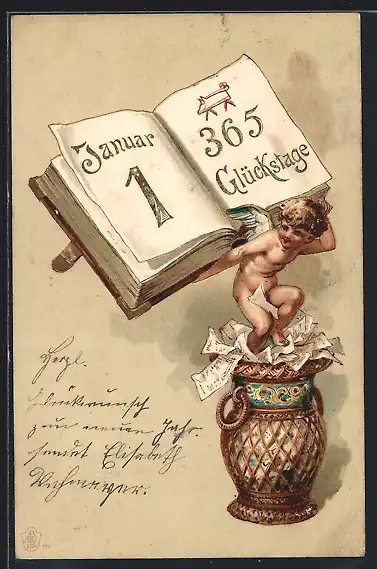 Januar
1
365
Glückstage
Herzl.
Glückwunsch
zum neuen Jahr.
sendet Elisabeth